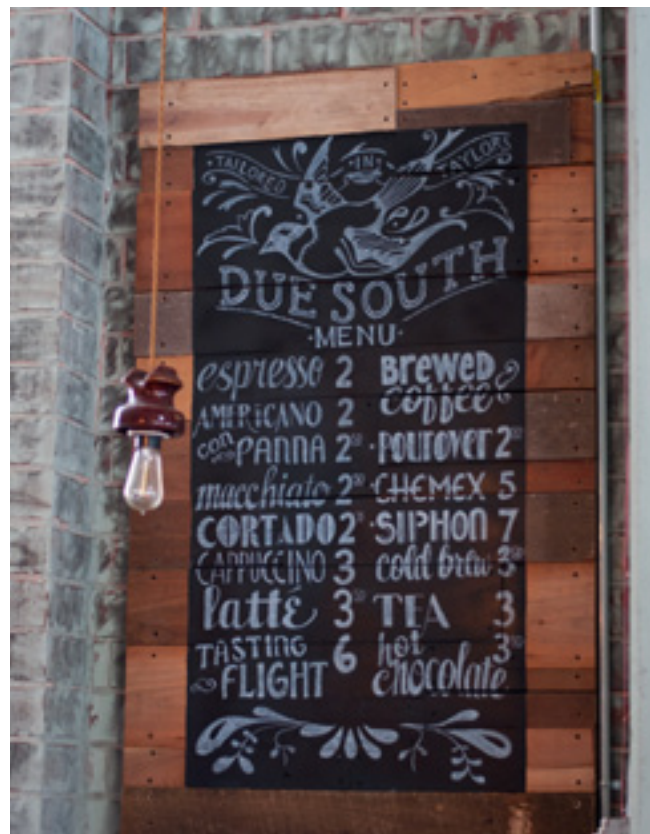 TAILORED IN TAYLORS
DUE SOUTH
MENU
espresso 2
AMERICANO 2
con PANNA 2⁵⁰
macchiato 2⁵⁰
CORTADO 2⁵⁰
CAPPUCCINO 3
latté 3⁵⁰
TASTING
FLIGHT 6
BREWED
coffee
POUROVER 2⁵⁰
CHEMEX 5
SIPHON 7
cold brew 3⁵⁰
TEA 3
hot
chocolate 3⁵⁰